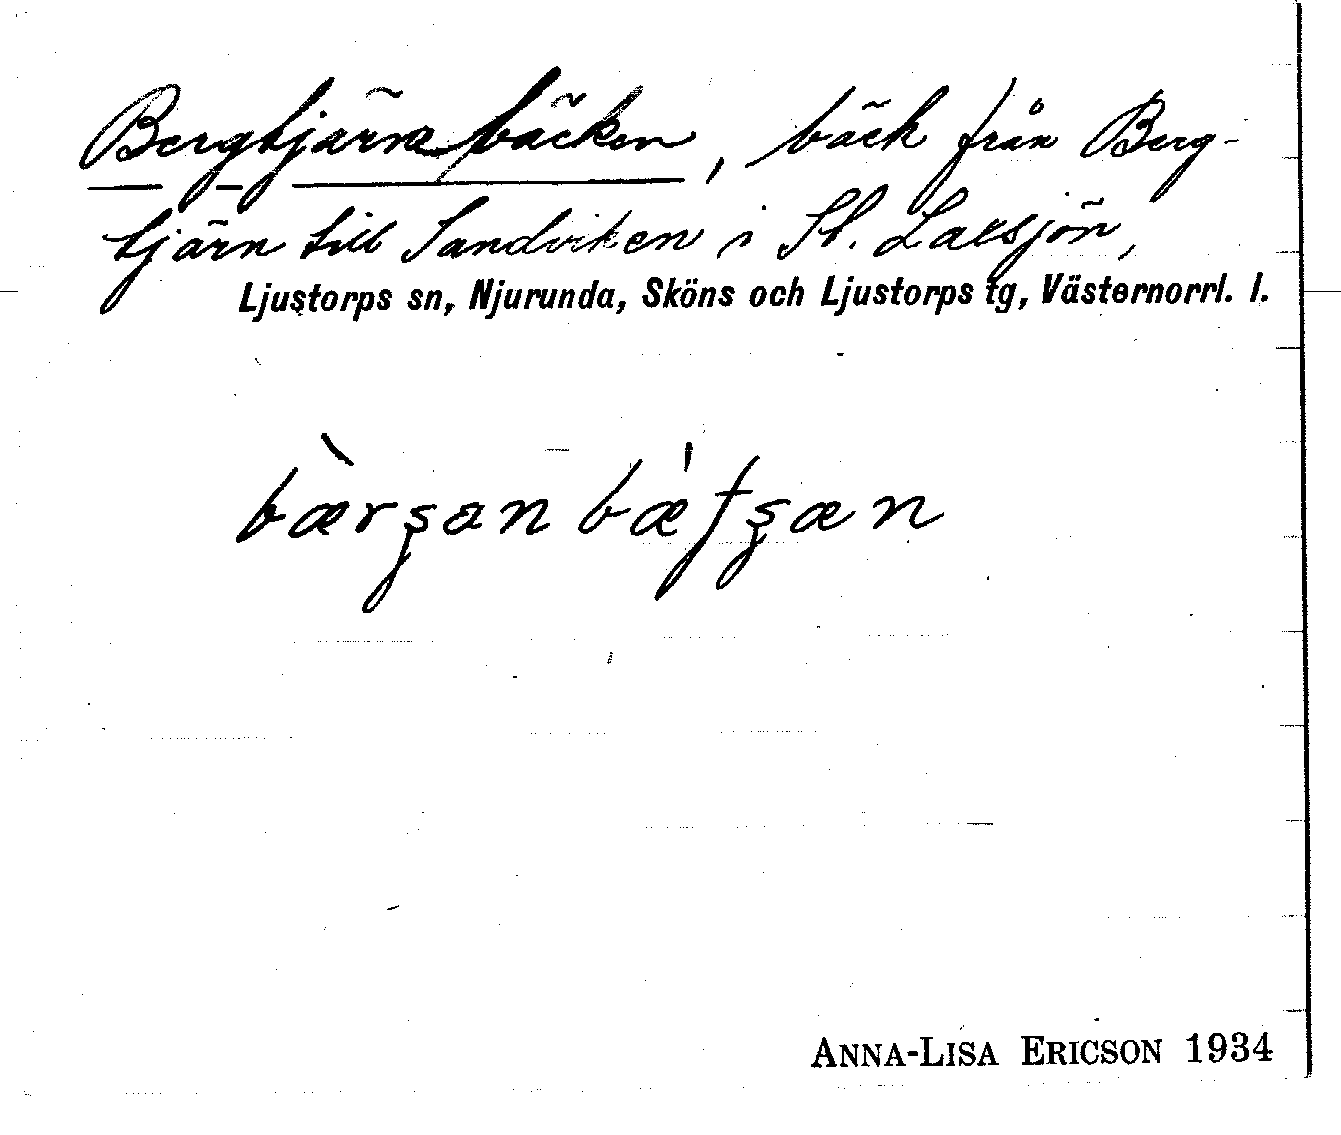 Bergtjärnbäcken, bäck från Berg-
tjärn till Sandviken i St. Laxsjön,
Ljustorps sn, Njurunda, Sköns och Ljustorps tg, Västernorrl. l.
ANNA-LISA ERICSON 1934